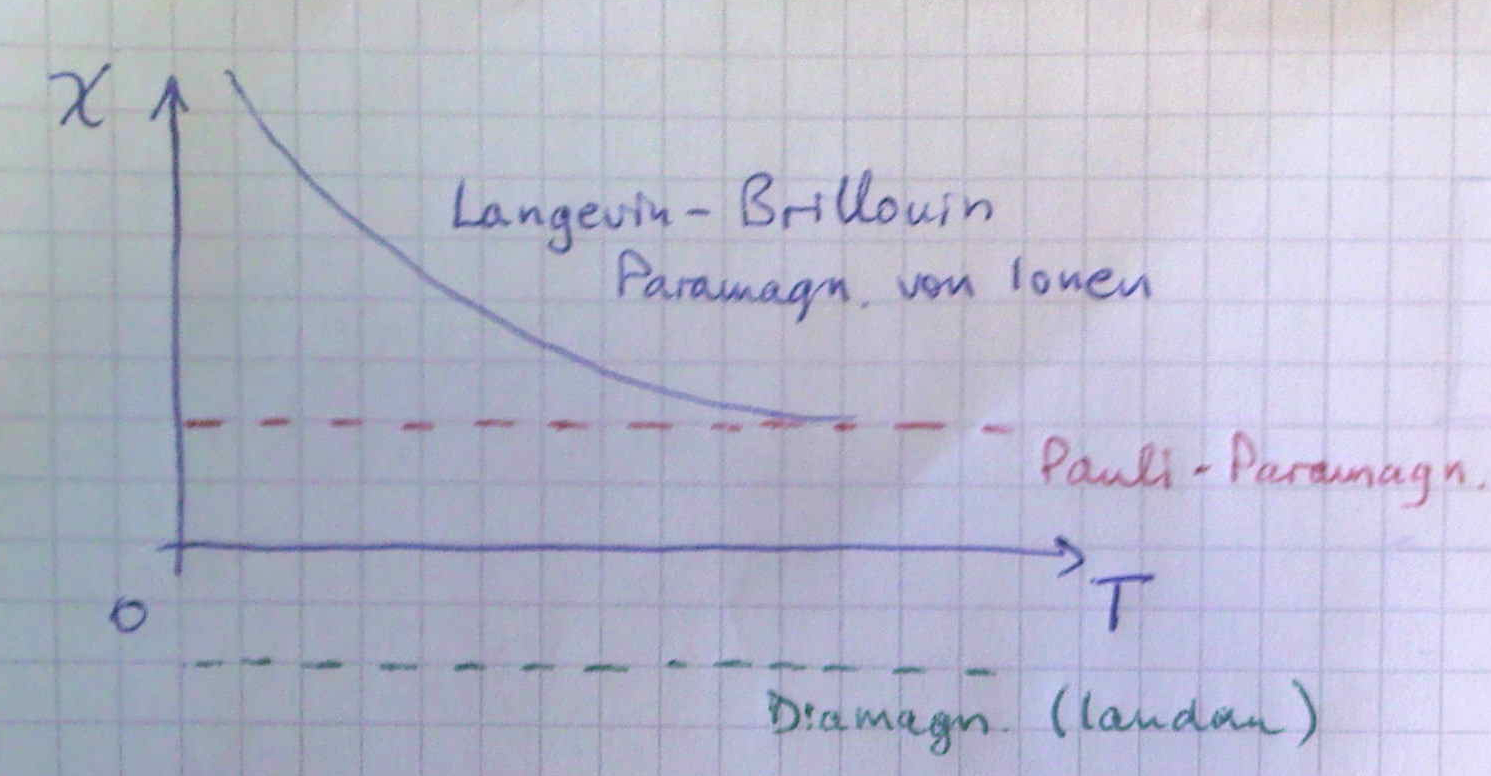 χ
Langevin - Brillouin
Paramagn. von Ionen
Pauli - Paramagn.
T
0
Diamagn. (Landau)